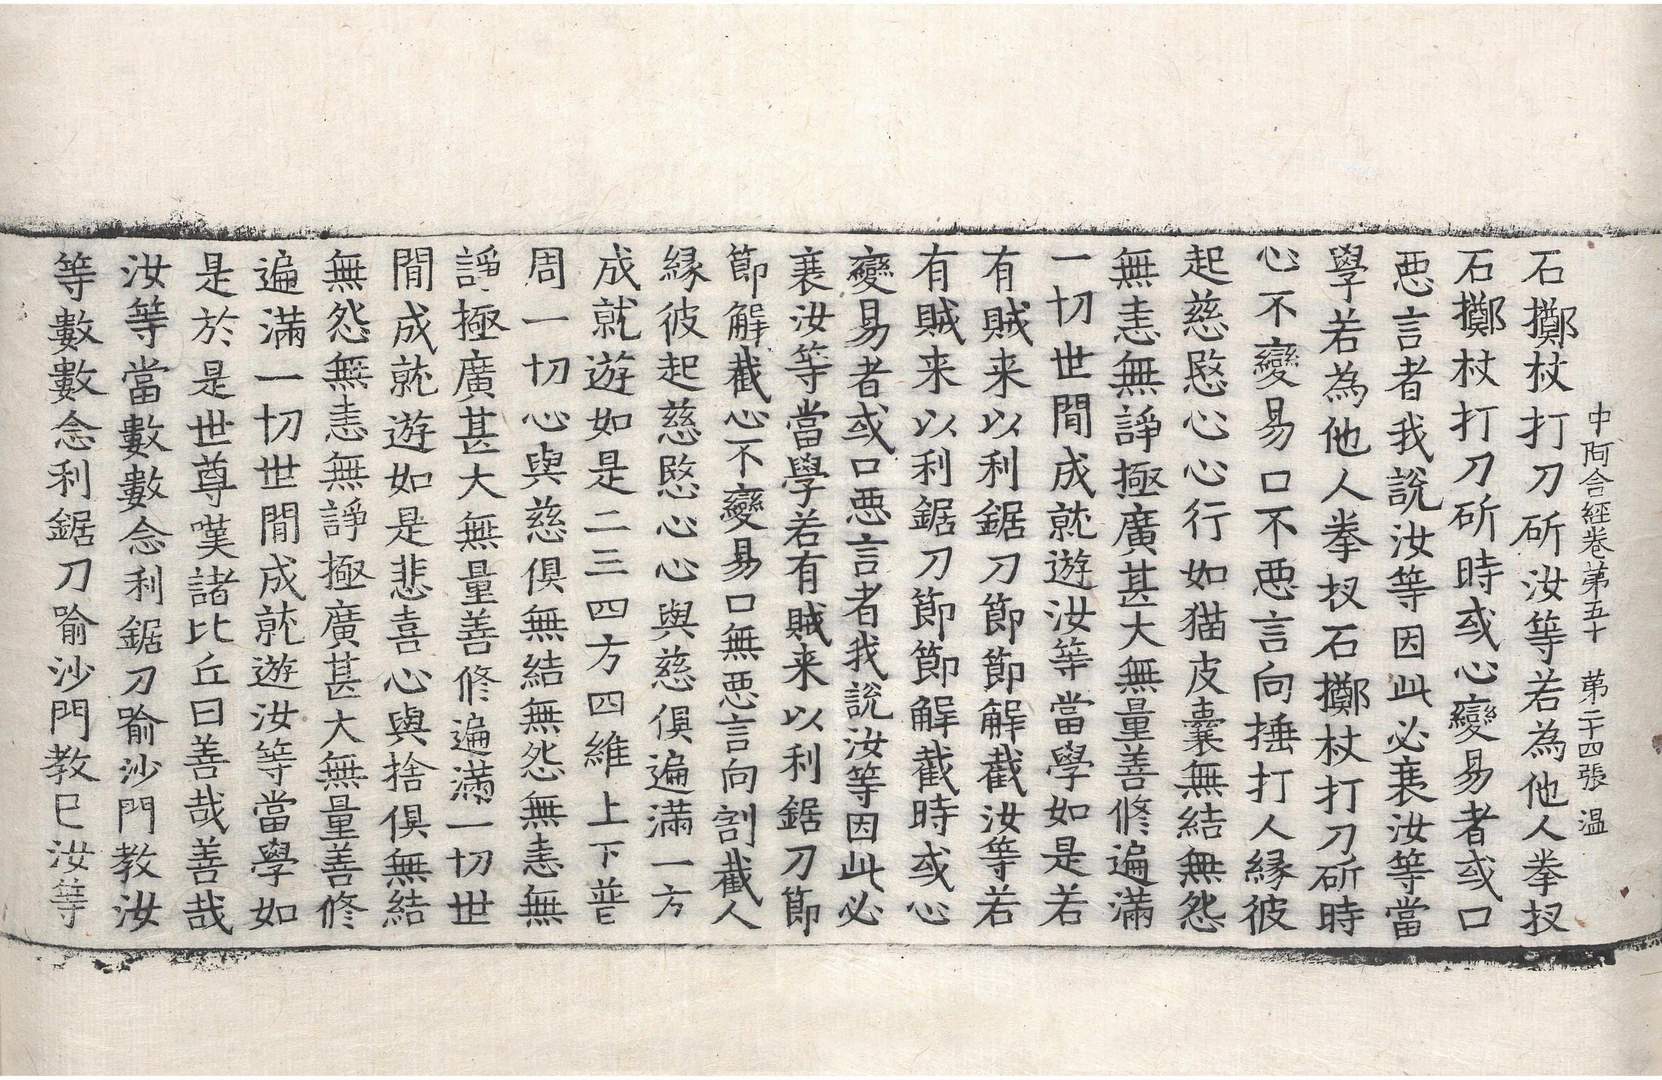 中阿含經卷第五十　第二十四張　温
石擲杖打刀斫汝等若為他人拳扠
石擲杖打刀斫時或心變易者或口
惡言者我說汝等因此必衰汝等當
學若為他人拳扠石擲杖打刀斫時
心不變易口不惡言向捶打人縁彼
起慈愍心心行如猫皮囊無結無怨
無恚無諍極廣甚大無量善修遍滿
一切世間成就遊汝等當學如是若
有賊来以利鋸刀節節解截汝等若
有賊来以利鋸刀節節解截時或心
變易者或口惡言者我說汝等因此必
衰汝等當學若有賊来以利鋸刀節
節解截心不變易口無惡言向割截人
縁彼起慈愍心心與慈俱遍滿一方
成就遊如是二三四方四維上下普
周一切心與慈俱無結無怨無恚無
諍極廣甚大無量善修遍滿一切世
間成就遊如是悲喜心與捨俱無結
無怨無恚無諍極廣甚大無量善修
遍滿一切世間成就遊汝等當學如
是於是世尊嘆諸比丘曰善哉善哉
汝等當數數念利鋸刀喻沙門教汝
等數數念利鋸刀喻沙門教已汝等